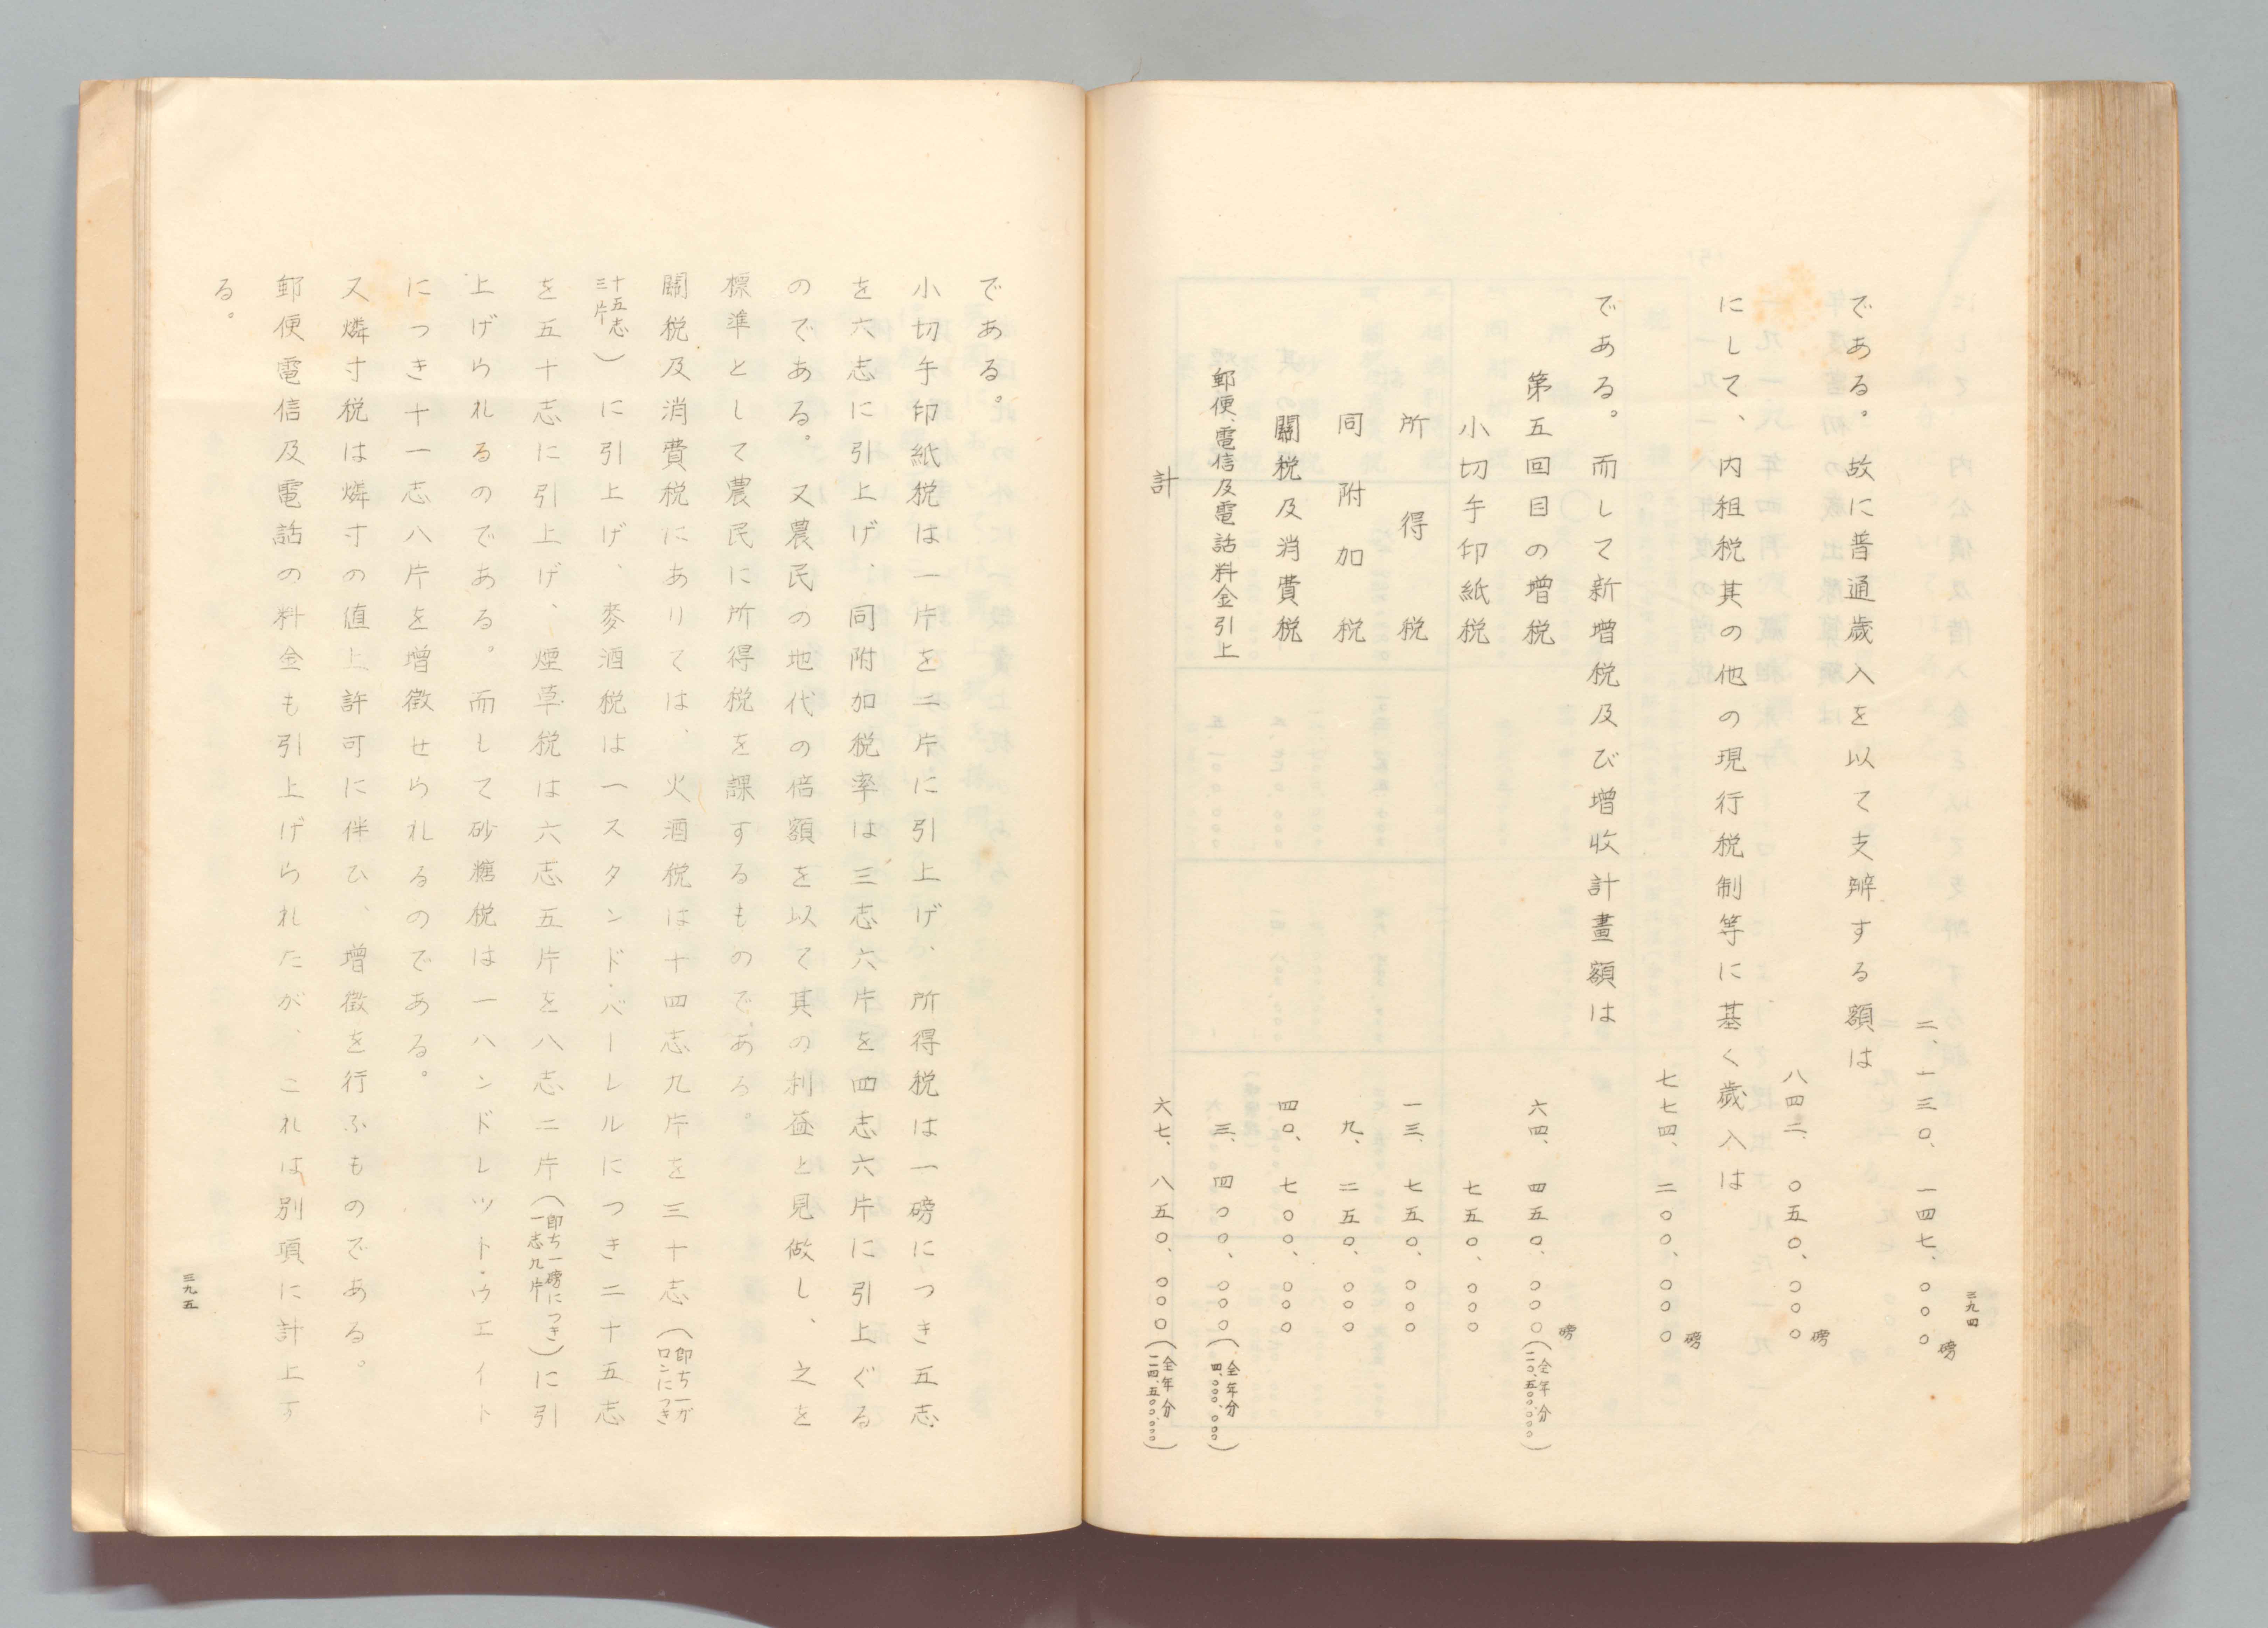 三九四
二、一三〇、一四七、〇〇〇磅
である。故に普通歳入を以て支辨する額は
八四二、〇五〇、〇〇〇磅
にして、内租税其の他の現行税制等に基く歳入は
七七四、二〇〇、〇〇〇磅
である。而して新増税及び増收計畫額は
第五回目の増税 六四、四五〇、〇〇〇磅(全年分一一〇、五〇〇、〇〇〇)
小切手印紙税 七五〇、〇〇〇
所得税 一三、七五〇、〇〇〇
同附加税 九、二五〇、〇〇〇
關税及消費税 四〇、七〇〇、〇〇〇
郵便、電信及電話料金引上 三、四〇〇、〇〇〇(全年分四、〇〇〇、〇〇〇)
計 六七、八五〇、〇〇〇(全年分一一四、五〇〇、〇〇〇)
である。
小切手印紙税は一片を二片に引上げ、所得税は一磅につき五志
を六志に引上げ、同附加税率は三志六片を四志六片に引上ぐる
のである。又農民の地代の倍額を以て其の利益と見做し、之を
標準として農民に所得税を課するものである。
關税及消費税にありては、火酒税は十四志九片を三十志(卽ち一ガロンにつき
十五志三片)に引上げ、麥酒税は一スタンド・バーレルにつき二十五志
を五十志に引上げ、煙草税は六志五片を八志二片(卽ち一磅につき一志九片)に引
上げられるのである。而して砂糖税は一ハンドレツト・ウエイト
につき十一志八片を増徴せられるのである。
又燐寸税は燐寸の値上許可に伴ひ、増徴を行ふものである。
郵便電信及電話の料金も引上げられたが、これは別項に計上す
る。
三九五